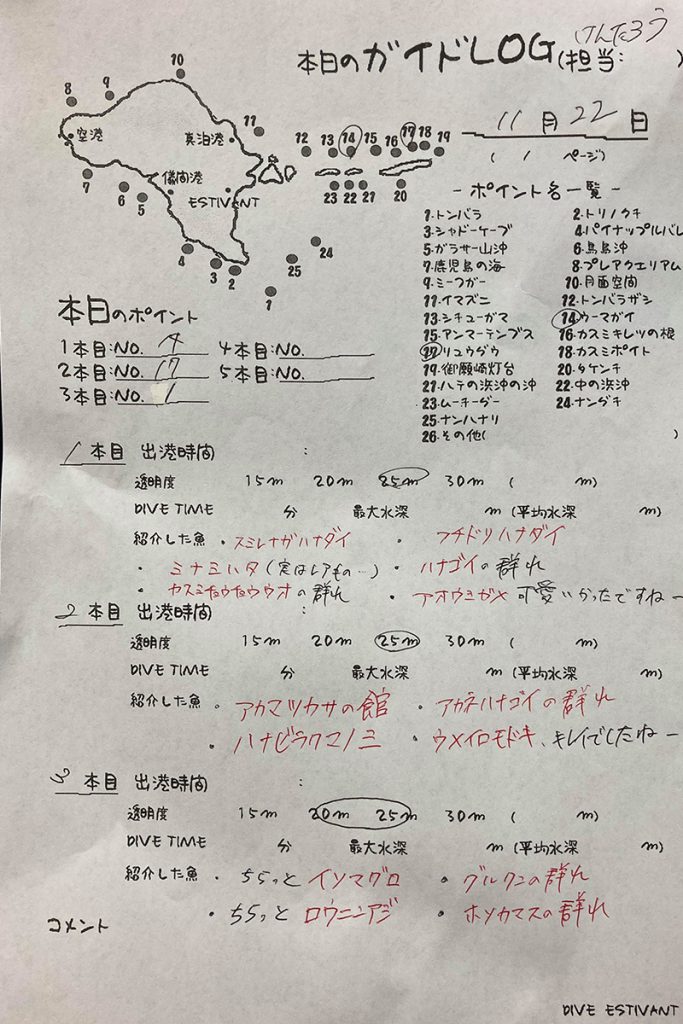 本日のガイドLOG(担当: けんたろう )
11月22日
( 1 ページ)
10
8 9
空港
真泊港
11
12 13 14 15 16 17 18 19
7 6 5
儀間港
ESTIVANT
23 22 21 20
4 3 2 1
25 24
- ポイント名一覧 -
1.トンバラ 2.トリノクチ
3.シャドーケーブ 4.パイナップルバレ
5.ガラサー山沖 6.鳥島沖
7.鹿児島の海 8.プレアクエリアム
9.ミーフガー 10.月面空間
11.イマズニ 12.トンバラザシ
13.シチューガマ 14.ウーマガイ
15.アンマーテンプス 16.カスミキレツの根
17.リュウグウ 18.カスミポイト
19.御願崎灯台 20.タケンチ
21.ハテの浜沖の沖 22.中の浜沖
23.ムーチーダー 24.ナンダキ
25.ナンハナリ
26.その他( )
本日のポイント
1本目:NO. 14 4本目:NO.
2本目:NO. 17 5本目:NO.
3本目:NO. 1
1本目 出港時間 :
透明度 15m 20m 25m 30m ( m)
DIVE TIME 分 最大水深 m (平均水深 m)
紹介した魚 ・スミレナガハナダイ ・フチドリハナダイ
・ミナミハタ(実はレアもの…) ・ハナゴイの群れ
・カスミチョウチョウウオの群れ ・アオウミガメ 可愛いかったですねー
2本目 出港時間 :
透明度 15m 20m 25m 30m ( m)
DIVE TIME 分 最大水深 m (平均水深 m)
紹介した魚 ・アカマツカサの館 ・アカネハナゴイの群れ
・ハナビラクマノミ ・ウメイロモドキ、キレイでしたねー
3本目 出港時間 :
透明度 15m 20m 25m 30m ( m)
DIVE TIME 分 最大水深 m (平均水深 m)
紹介した魚 ・ちらっと イソマグロ ・グルクンの群れ
・ちらっと ロウニンアジ ・ホソカマスの群れ
コメント
DIVE ESTIVANT